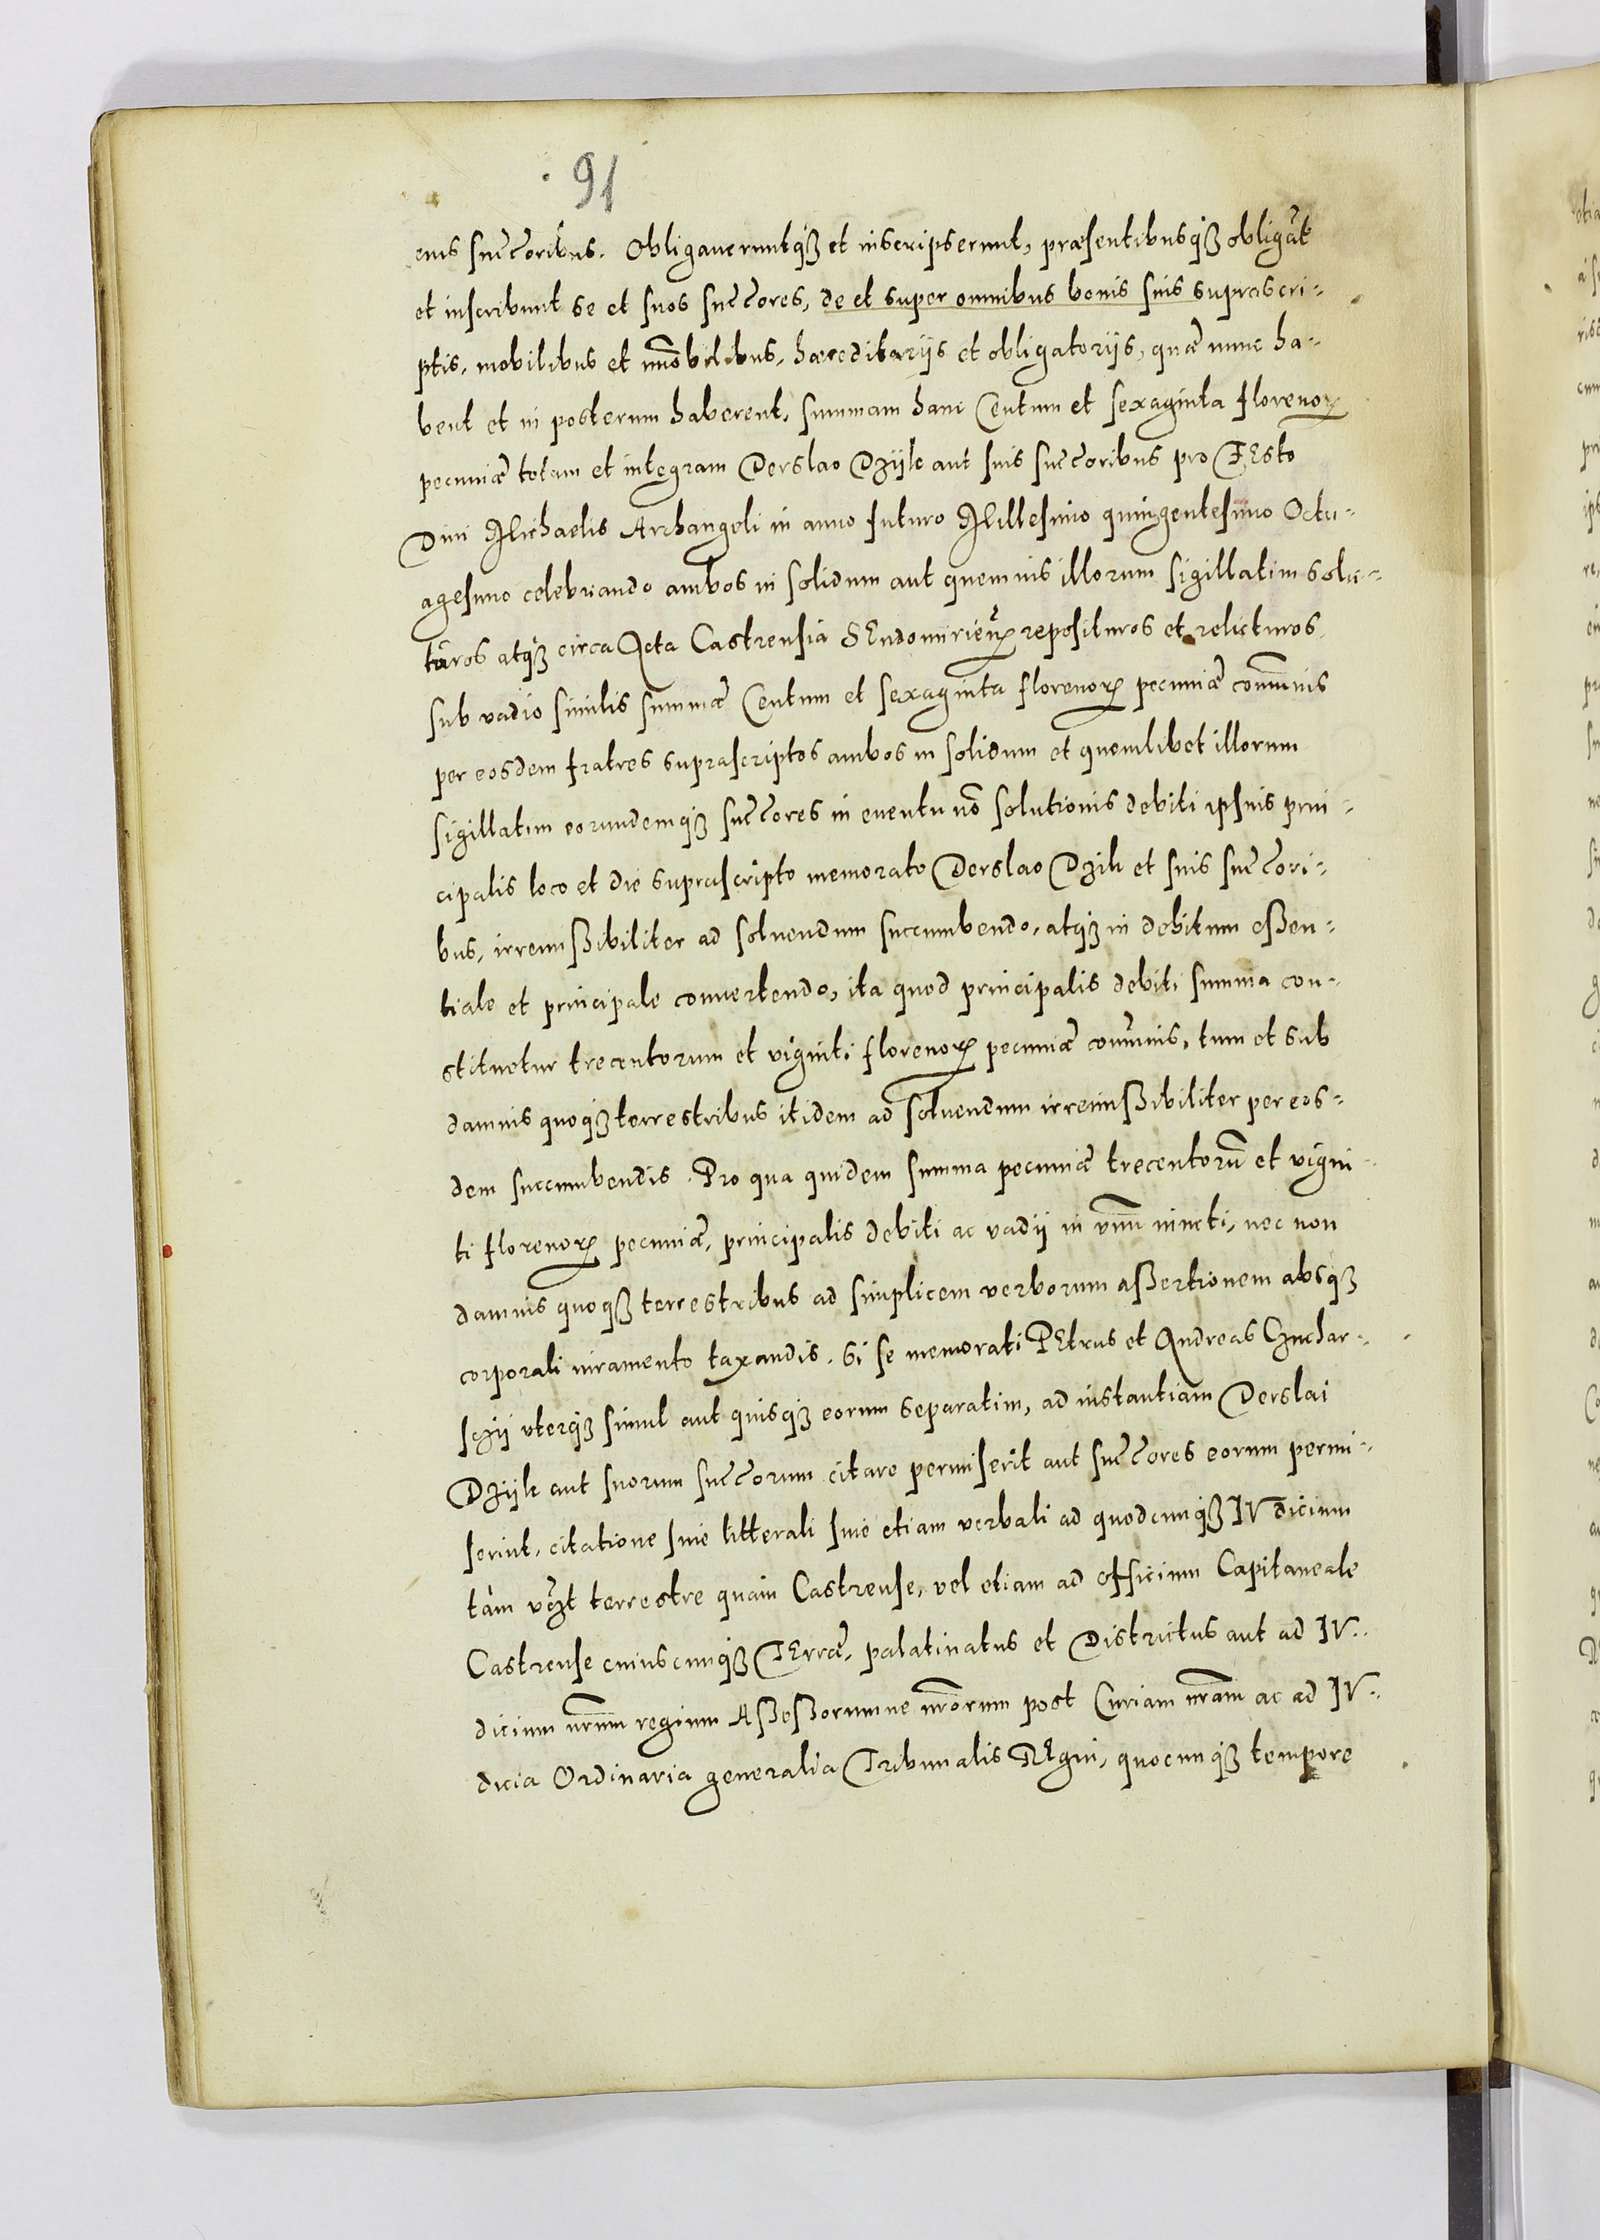 91
eius succ͠oribus. Obligaueruntq̃ʒ et inscripserunt, præsentibusq̃ʒ obligãt
et inscribunt se et suos succ͠ores, de et super omnibus bonis suis suprascri-
ptis, mobilibus et im̃obilibus, hæreditariis et obligatoriis, quæ nunc ha-
bent et in posterum haberent, summam hanc Centum et sexaginta florenoꝝ
pecuniæ totam et integram Derslao Dzijk aut suis succ͠oribus pro FEsto
Diui Michaelis Archangeli in anno futuro Millesimo quingentesimo Octu-
agesimo celebrando ambos in solidum aut quemuis illorum sigillatim solu-
turos atq̃ʒ circa Acta Castrensia SEndomirien̄ reposituros et relicturos,
sub vadio similis summæ Centum et sexaginta florenoꝝ pecuniæ com̃unis
per eosdem fratres suprascriptos ambos in solidum et quemlibet illorum
sigillatim eorundemq̃ʒ succ͠ores in euentu nõ solutionis debiti ipsius prin-
cipalis loco et die suprascripto memorato Derslao Dzik et suis succ͠ori-
bus, irremißibiliter ad soluendum succumbendo, atq̃ʒ in debitum eßen-
tiale et principale conuertendo, ita quod principalis debiti summa con-
stituetur trecentorum et viginti florenoꝝ pecuniæ com̃unis, tum et sub
damnis quoq̃ʒ terrestribus itidem ad soluendum irremißibiliter per eos-
dem succumbendis. Pro qua quidem summa pecuniæ trecentorũ et vigin-
ti florenoꝝ pecuniæ, principalis debiti ac vadij in vnũ iuncti, nec non
damnis quoq̃ʒ terrestribus ad simplicem verborum aßertionem absq̃ʒ
corporali iuramento taxandis. Si se memorati PEtrus et Andreas Czuchar-
sczij vterq̃ʒ simul aut quisq̃ʒ eorum separatim, ad instantiam Derslai
Dzijk aut suorum succ͠orum citare permiserit aut succ͠ores eorum permi-
serint, citatione siue litterali siue etiam verbali ad quodcunq̃ʒ IVdicium
tàm terrestre quàm Castrense, vel etiam ad officium Capitaneale
Castrense cuiuscunq̃ʒ TErræ, palatinatus et Districtus aut ad IV-
dicium nr̃um regium Aßeßorumue nr̃orum post Curiam nr̃am ac ad IV-
dicia Ordinaria generalia Tribunalis REgni, quocunq̃ʒ tempore